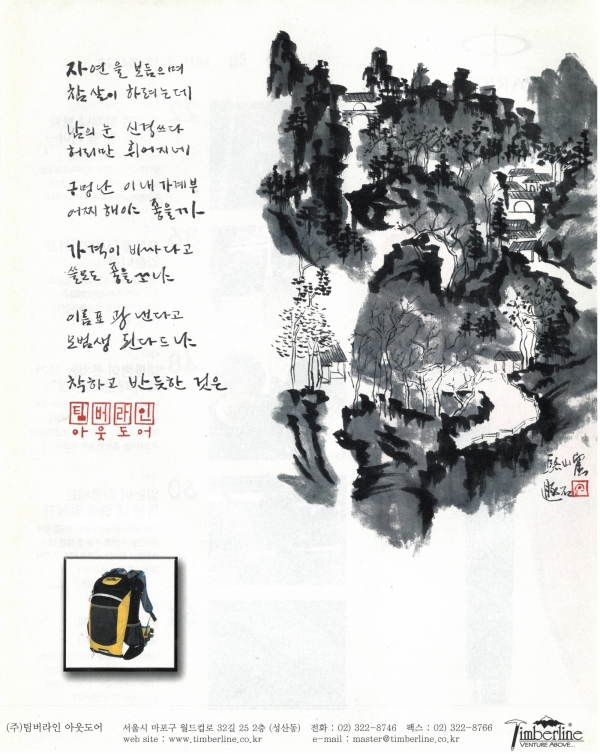 자연을 보듬으며
참살이 하려는데
남의 눈 신경쓰다
허리만 휘어지네
구멍난 이내가계부
어찌해야 좋을까
가격이 비싸다고
쓸모도 좋을쏘냐
이름표 광 낸다고
모범생 된다드냐
착하고 반듯한 것은
팀버라인
아웃도어
(주)팀버라인 아웃도어 서울시 마포구 월드컵로 32길 25 2층 (성산동) 전화 : 02) 322-8746 팩스 : 02) 322-8766
web site : www.timberline.co.kr e-mail : master@timberline.co.kr
Timberline
VENTURE ABOVE...